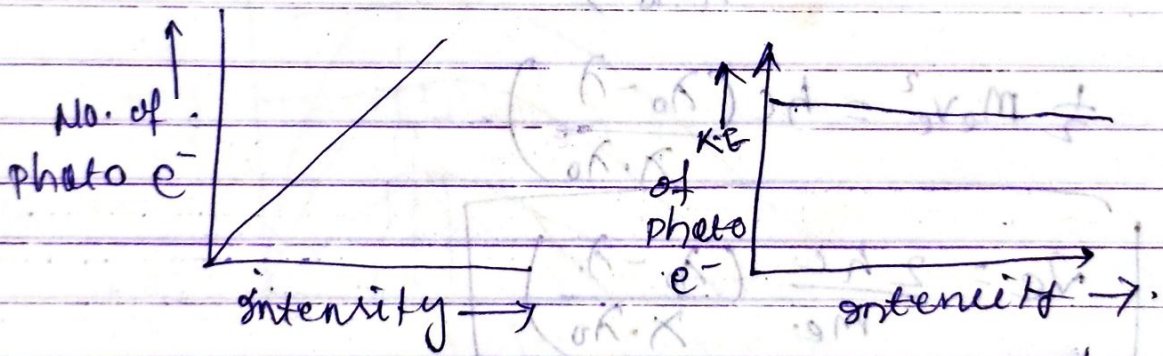 No. of
photo e⁻
intensity →
K.E
of
photo
e⁻
intensity →.